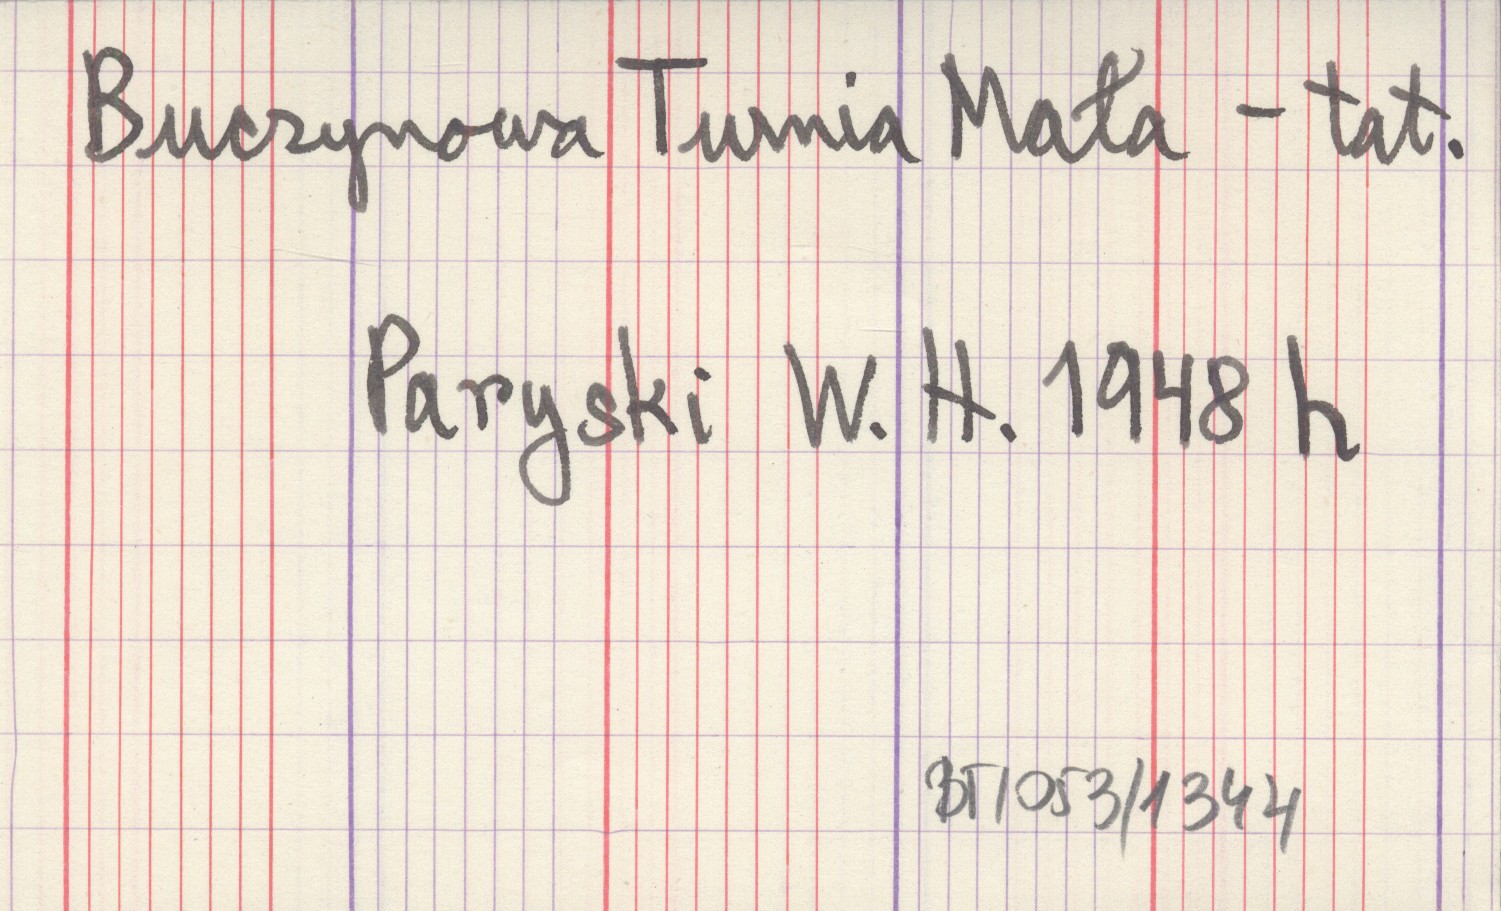 Buczynowa Turnia Mała - tat.
Paryski W. H. 1948 h
BT/053/1344